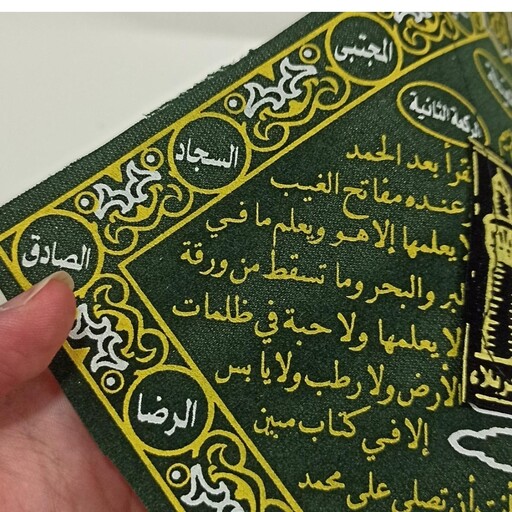 المجتبى
السجاد
الصادق
الرضا
الركعة الثانية
إقرأ بعد الحمد
وعنده مفاتح الغيب
لا يعلمها إلا هو ويعلم ما في
البر والبحر وما تسقط من ورقة
إلا يعلمها ولا حبة في ظلمات
الأرض ولا رطب ولا يابس
إلا في كتاب مبين
أنت أن تصلي على محمد